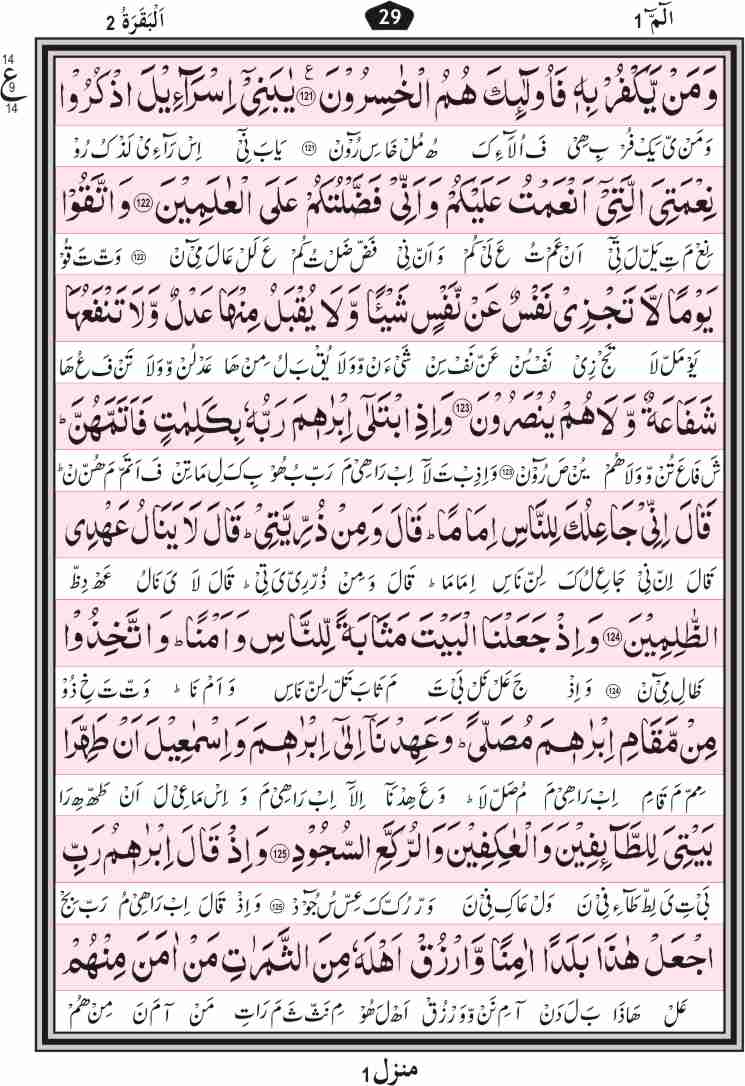 الٓمّٓ 1 29 اَلْبَقَرَةُ 2
14
ع
9
14
وَمَنْ يَّكْفُرْ بِهٖ فَاُولٰٓئِكَ هُمُ الْخٰسِرُوْنَ ﴿121﴾ ع يٰبَنِيْٓ اِسْرَآءِيْلَ اذْكُرُوْا
وَمَنْ یْ یَکْ فُرْ بِ ھِیْ فَ اُلَآءِ کَ ھُ مُلْ خَاسِ رُوْٓنْ 121 یَابَ نِیْٓ اِسْ رَآءِیْ لَذْکُ رُوْ
نِعْمَتِيَ الَّتِيْٓ اَنْعَمْتُ عَلَيْكُمْ وَاَنِّيْ فَضَّلْتُكُمْ عَلَى الْعٰلَمِيْنَ ﴿122﴾ وَاتَّقُوْا
نِعْ مَ تِ یَلْ لَ تِیْٓ اَنْ عَمْ تُ عَ لَیْ کُمْ وَ اَنْ نِیْ فَضْ ضَلْ تُ کُمْ عَ لَلْ عَالَ مِیْٓ نْ 122 وَتْ تَ قُوْ
يَوْمًا لَّا تَجْزِيْ نَفْسٌ عَنْ نَّفْسٍ شَيْـًٔا وَّلَا يُقْبَلُ مِنْهَا عَدْلٌ وَّلَا تَنْفَعُهَا
یَوْ مَلْ لَا تَجْ زِیْ نَفْ سُنْ عَنْ نَفْ سِنْ شَیْ ءَنْ وْ وَلَا یُقْ بَ لُ مِنْ ھَا عَدْ لُنْ وْ وَلَا تَنْ فَ عُ ھَا
شَفَاعَةٌ وَّلَا هُمْ يُنْصَرُوْنَ ﴿123﴾ وَاِذِ ابْتَلٰٓى اِبْرٰهٖمَ رَبُّهٗ بِكَلِمٰتٍ فَاَتَمَّهُنَّ ؕ
شَ فَاعَ تُنْ وْ وَلَا ھُمْ یُنْ صَ رُوْٓنْ 123 وَ اِذِبْ تَ لَآ اِبْ رَاھِیْ مَ رَبْ بُ ھُوْ بِ کَ لِ مَاتِنْ فَ اَتَمْ مَ ھُنْ نْ ؕ
قَالَ اِنِّيْ جَاعِلُكَ لِلنَّاسِ اِمَامًا ؕ قَالَ وَمِنْ ذُرِّيَّتِيْ ؕ قَالَ لَا يَنَالُ عَهْدِي
قَالَ اِنْ نِیْ جَاعِ لُ کَ لِنْ نَاسِ اِمَامَا ؕ قَالَ وَ مِنْ ذُرْرِیْ یَ تِیْ ؕ قَالَ لَا یَ نَالُ عَھْ دِظْ
الظّٰلِمِيْنَ ﴿124﴾ وَاِذْ جَعَلْنَا الْبَيْتَ مَثَابَةً لِّلنَّاسِ وَاَمْنًا ؕ وَاتَّخِذُوْا
ظَالِ مِیْٓ نْ 124 وَ اِذْ جَ عَلْ نَلْ بَیْ تَ مَ ثَابَ تَلْ لِنْ نَاسِ وَ اَمْ نَا ؕ وَتْ تَ خِ ذُوْ
مِنْ مَّقَامِ اِبْرٰهٖمَ مُصَلًّى ؕ وَعَهِدْنَآ اِلٰٓى اِبْرٰهٖمَ وَاِسْمٰعِيْلَ اَنْ طَهِّرَا
مِمْ مَ قَامِ اِبْ رَاھِیْ مَ مُصَلْ لَا ؕ وَ عَ ھِدْ نَآ اِلَآ اِبْ رَاھِیْ مَ وَ اِسْ مَاعِیْ لَ اَنْ طَھْ ھِ رَا
بَيْتِيَ لِلطَّآئِفِيْنَ وَالْعٰكِفِيْنَ وَالرُّكَّعِ السُّجُوْدِ ﴿125﴾ وَاِذْ قَالَ اِبْرٰهٖمُ رَبِّ
بَیْ تِ یَ لِطْ طَآءِ فِیْ نَ وَلْ عَاکِ فِیْ نَ وَرْ رُکْ کَ عِسْ سُ جُوْٓدْ 125 وَ اِذْ قَالَ اِبْ رَاھِیْ مُ رَبْ بِجْ
اجْعَلْ هٰذَا بَلَدًا اٰمِنًا وَّارْزُقْ اَهْلَهٗ مِنَ الثَّمَرٰتِ مَنْ اٰمَنَ مِنْهُمْ
عَلْ ھَاذَا بَ لَ دَنْ آ مِ نَنْ وْ وَرْ زُقْ اَھْ لَ ھُوْ مِ نَثْ ثَ مَ رَاتِ مَنْ آ مَ نَ مِنْ ھُمْ
منزل 1